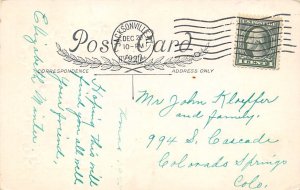 Post Card
JACKSONVILLE
DEC 2
10-PM
CORRESPONDENCE
ADDRESS ONLY
1 CENT 1
Hoping this will
find you all well
Your friend,
Elizabeth
Mr John Kloepfer
and family.
994 S. Cascade
Colorado Springs
Colo.